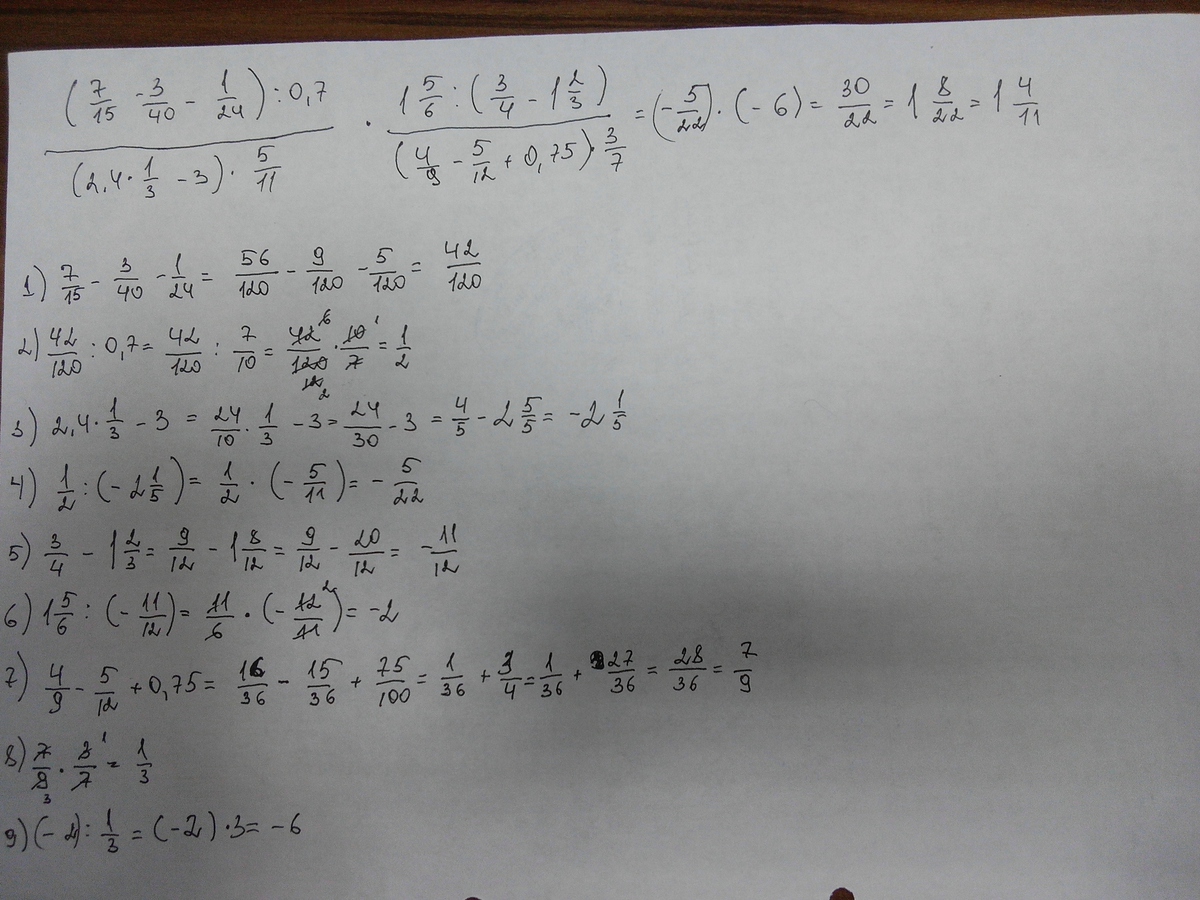 (7/15 - 3/40 - 1/24) : 0,7 / (2,4 · 1/3 - 3) · 5/11 · 1 5/6 : (3/4 - 1 2/3) / (4/9 - 5/12 + 0,75) · 3/7 = (- 5/22) · (- 6) = 30/22 = 1 8/22 = 1 4/11
1) 7/15 - 3/40 - 1/24 = 56/120 - 9/120 - 5/120 = 42/120
2) 42/120 : 0,7 = 42/120 : 7/10 = 42/120 · 10/7 = 1/2
3) 2,4 · 1/3 - 3 = 24/10 · 1/3 - 3 = 24/30 - 3 = 4/5 - 2 5/5 = - 2 1/5
4) 1/2 : (- 2 1/5) = 1/2 · (- 5/11) = - 5/22
5) 3/4 - 1 2/3 = 9/12 - 1 8/12 = 9/12 - 20/12 = - 11/12
6) 1 5/6 : (- 11/12) = 11/6 · (- 12/11) = -2
7) 4/9 - 5/12 + 0,75 = 16/36 - 15/36 + 75/100 = 1/36 + 3/4 = 1/36 + 27/36 = 28/36 = 7/9
8) 7/9 · 3/7 = 1/3
9) (- 2) : 1/3 = (-2) · 3 = -6